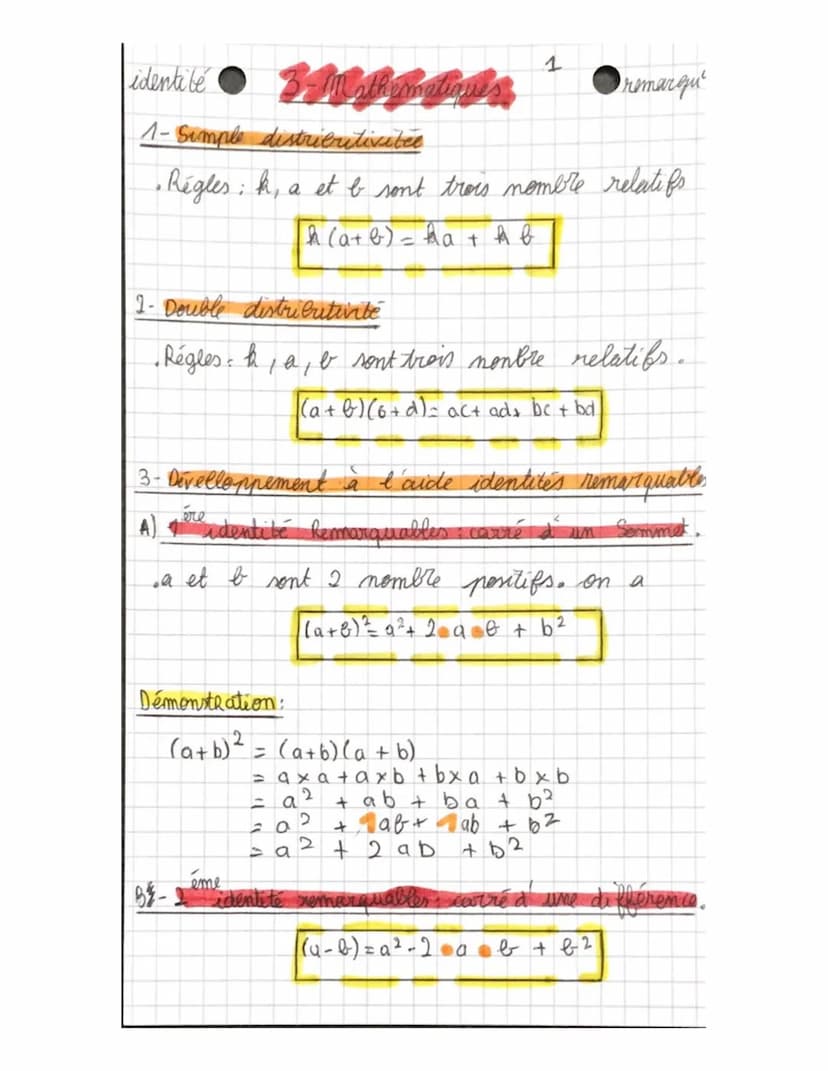 1
identité 3-Mathématiques remarqu
1- Simple distributivitée
. Régles : k, a et b sont trois nombre relatifs
k (a+b) = ka + k b
2- Double distributivité
. Régles : k, a, b sont trois nonbre relatifs.
(a + b)(c+d) = ac + ad + bc + bd
3- Dévelloppement à l'aide identités remarquables
A) 1ère identité Remarquables : carré d'un Sommet.
. a et b sont 2 nombre positifs. on a
(a+b)² = a² + 2•a•b + b²
Démonstration :
(a+b)² = (a+b)(a + b)
= a x a + a x b + b x a + b x b
= a² + ab + ba + b²
= a² + 1ab + 1ab + b²
= a² + 2 ab + b²
B - 2éme identité remarquables : carré d'une différence.
(a - b) = a² - 2 •a •b + b²